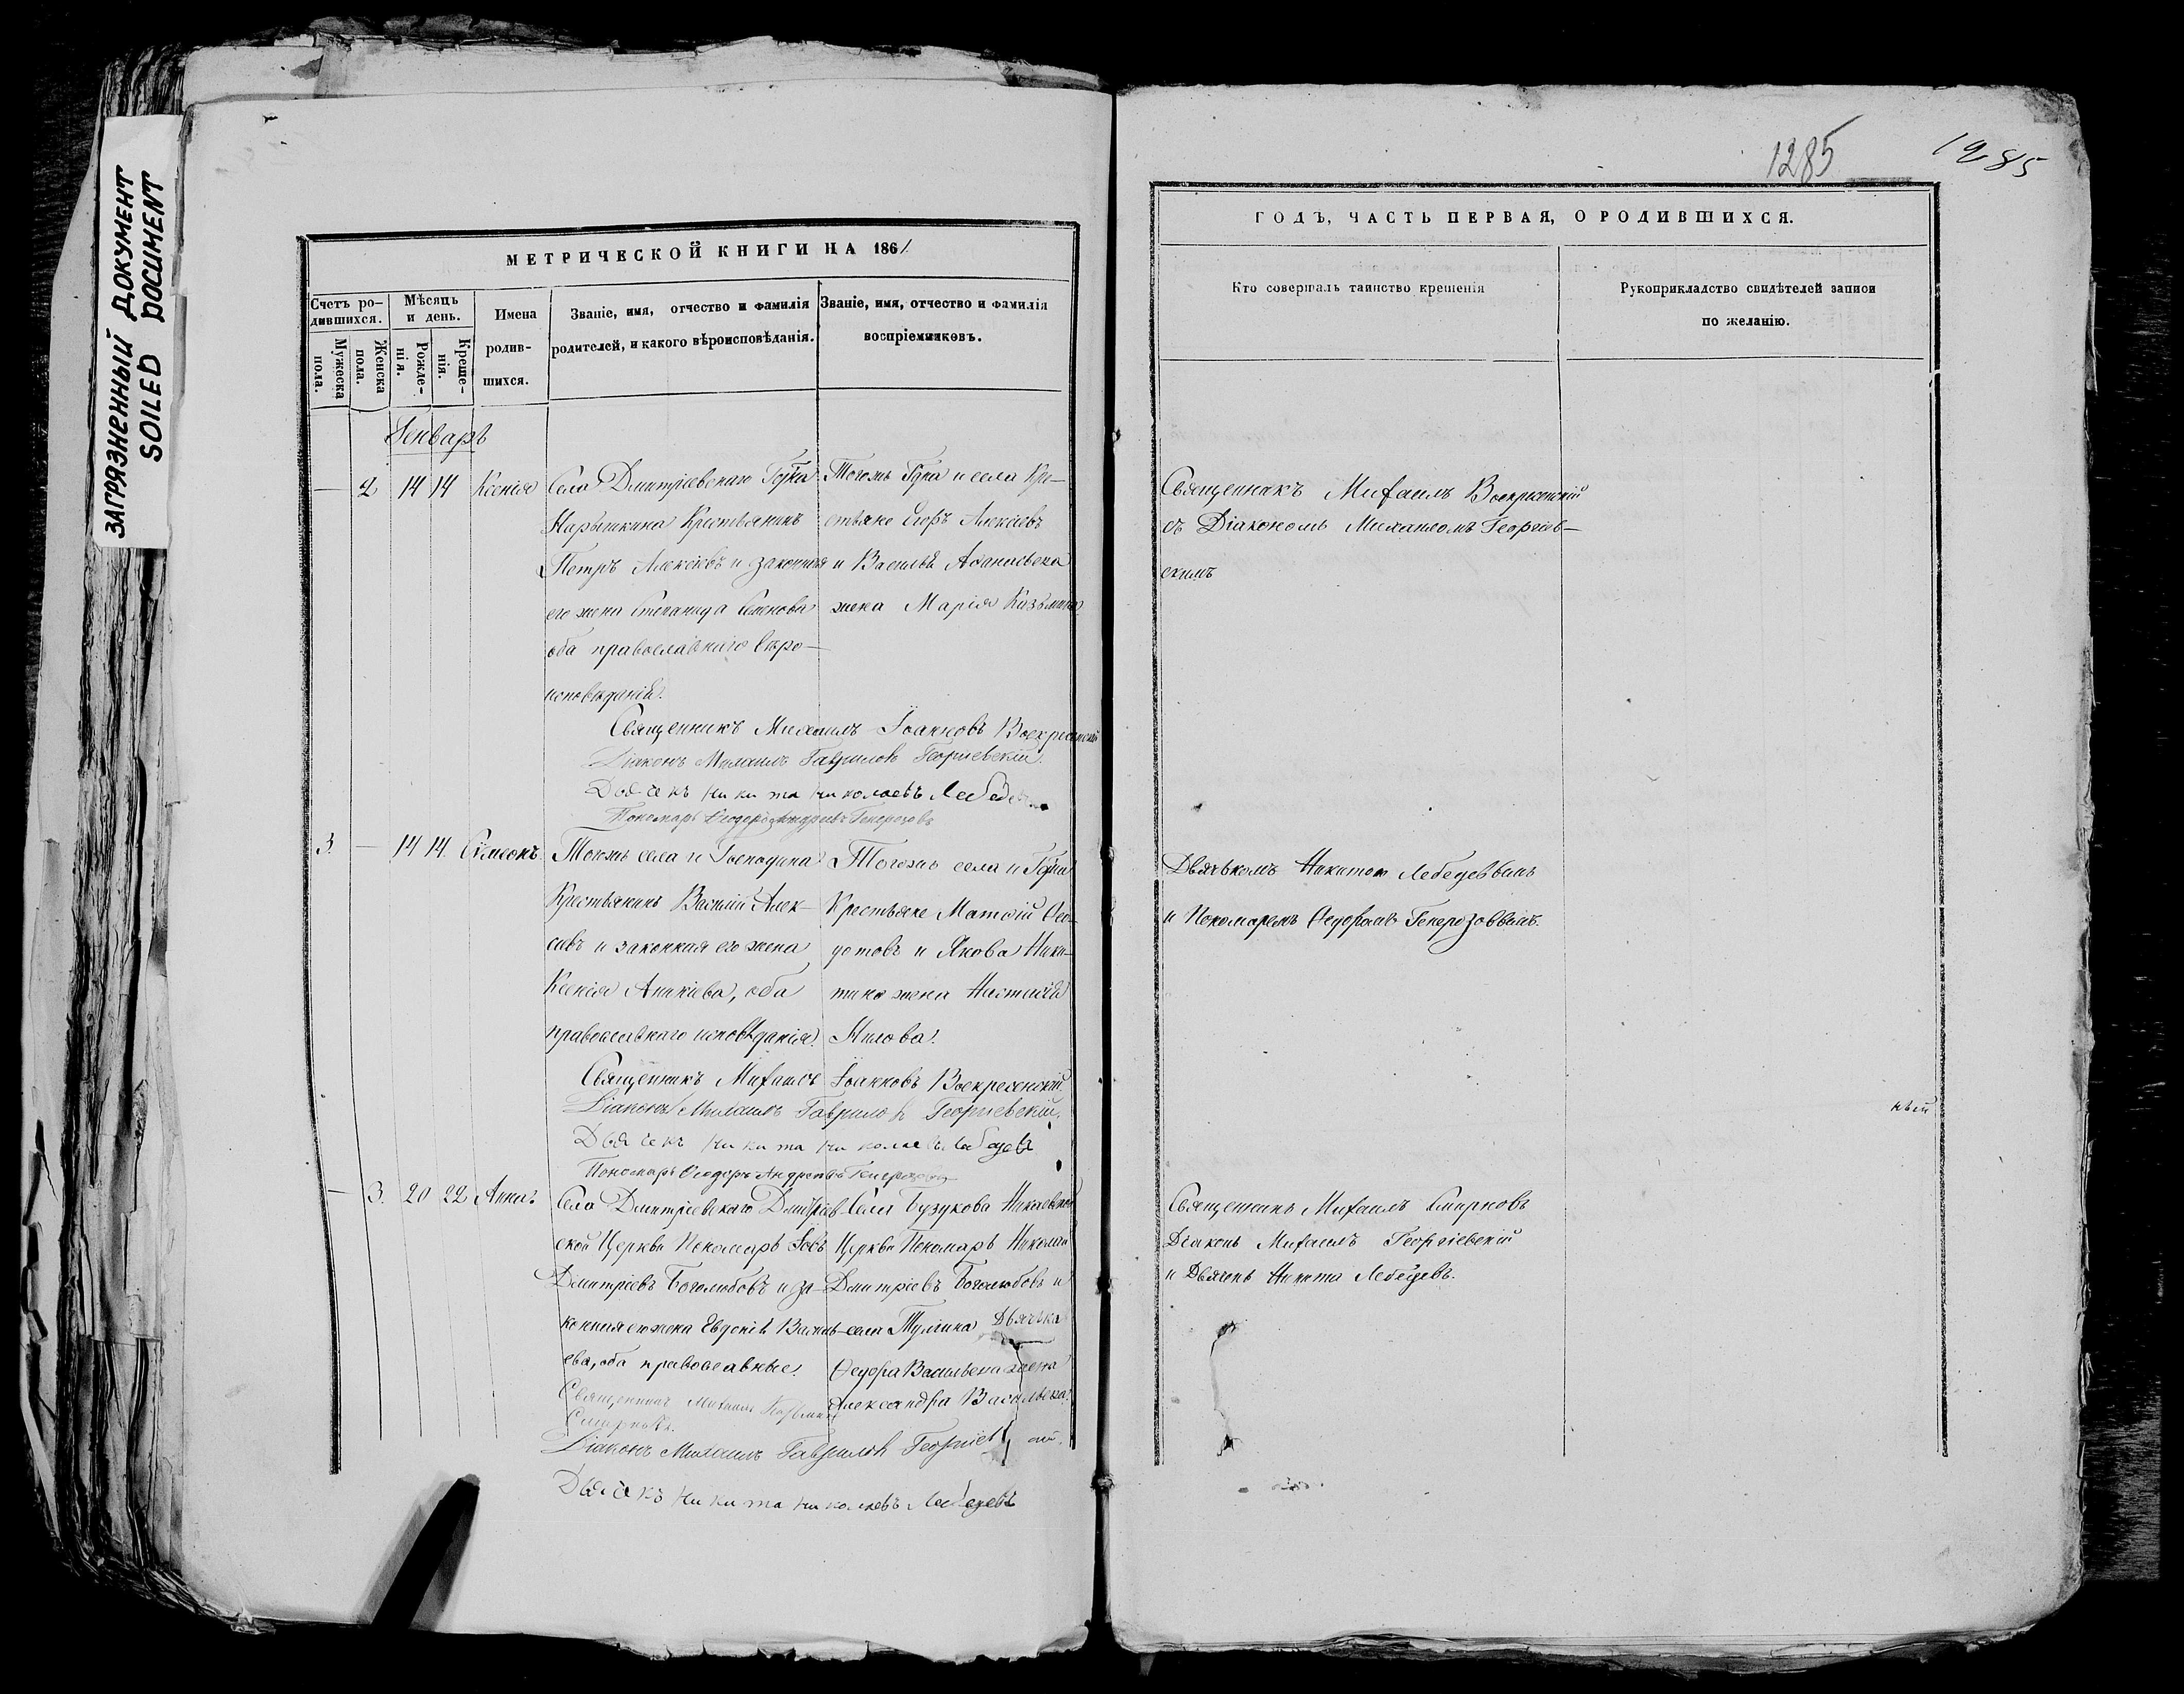 ЗАГРЯЗНЕННЫЙ ДОКУМЕНТ
SOILED DOCUMENT
МЕТРИЧЕСКОЙ КНИГИ НА 1861
Счетъ ро-
дившихся.
Мужеска
пола.
Женска
пола.
Мѣсяцъ
и день.
Рожде-
нія.
Креще-
нія.
Имена
родив-
шихся.
Званіе, имя, отчество и фамилія
родителей, и какого вѣроисповѣданія.
Званіе, имя, отчество и фамилія
воспріемниковъ.
Генварь
— 2 14 14 Ксенія
Села Дмитріевскаго Г्дна
Нарышкина Крестьянинъ
Петръ Алексіевъ и законная
его жена Степанида Семенова
оба православнаго вѣро-
исповѣданія.
Тогожъ Гдна и села Кре-
стьяне Егоръ Алексіевъ
и Василья Аѳанасьева
жена Марія Казьмина
Священникъ Михаилъ Іоанновъ Воскресенскій
Діаконъ Михаилъ Гавриловъ Георгіевскій.
Дьячекъ Никита Николаевъ Лебедевъ
Пономарь Ѳеодоръ Андреевъ Генерозовъ
3. — 14 14. Сѵмеонъ
Тогожъ села и Господина
Крестьянинъ Василій Алек-
сѣевъ и законная его жена
Ксенія Аникіева, оба
православнаго исповѣданія.
Тогожъ села и Гдна
Крестьяне Матѳій Ѳео-
дотовъ и Якова Ники-
тина жена Настасія
Нилова.
Священникъ Михаилъ Іоанновъ Воскресенскій
Діаконъ Михаилъ Гавриловъ Георгіевскій.
Дьячекъ Никита Николаевъ Лебедевъ
Пономарь Ѳеодоръ Андреевъ Генерозовъ
— 3. 20 22 Анна
Села Дмитріевскаго Дмитріев-
ской Церкви Пономарь Іовъ
Дмитріевъ Боголюбовъ и за-
конная его жена Евдокія Василь-
ева, оба православные.
Села Бузукова
Церкви Пономарь Николай
Дмитріевъ Боголюбовъ и
села Дьячка
Ѳедора Васильева жена
Александра Васильева.
Священникъ Михаилъ
Смирновъ.
Діаконъ Михаилъ Гавриловъ Георгіевскій.
Дьячекъ Никита Николаевъ Лебедевъ
1285
1285
ГОДЪ, ЧАСТЬ ПЕРВАЯ, О РОДИВШИХСЯ.
Кто совершалъ таинство крещенія
Рукоприкладство свидѣтелей записи
по желанію.
Священникъ Михаилъ Воскресенскій
съ Діакономъ Михаиломъ Георгіев-
скимъ
Дьячькомъ Никитою Лебедевымъ
и Пономаремъ Ѳедоромъ Генерозовымъ.
Священникъ Михаилъ Смирновъ
Діаконъ Михаилъ Георгіевскій
и Дьячекъ Никита Лебедевъ.